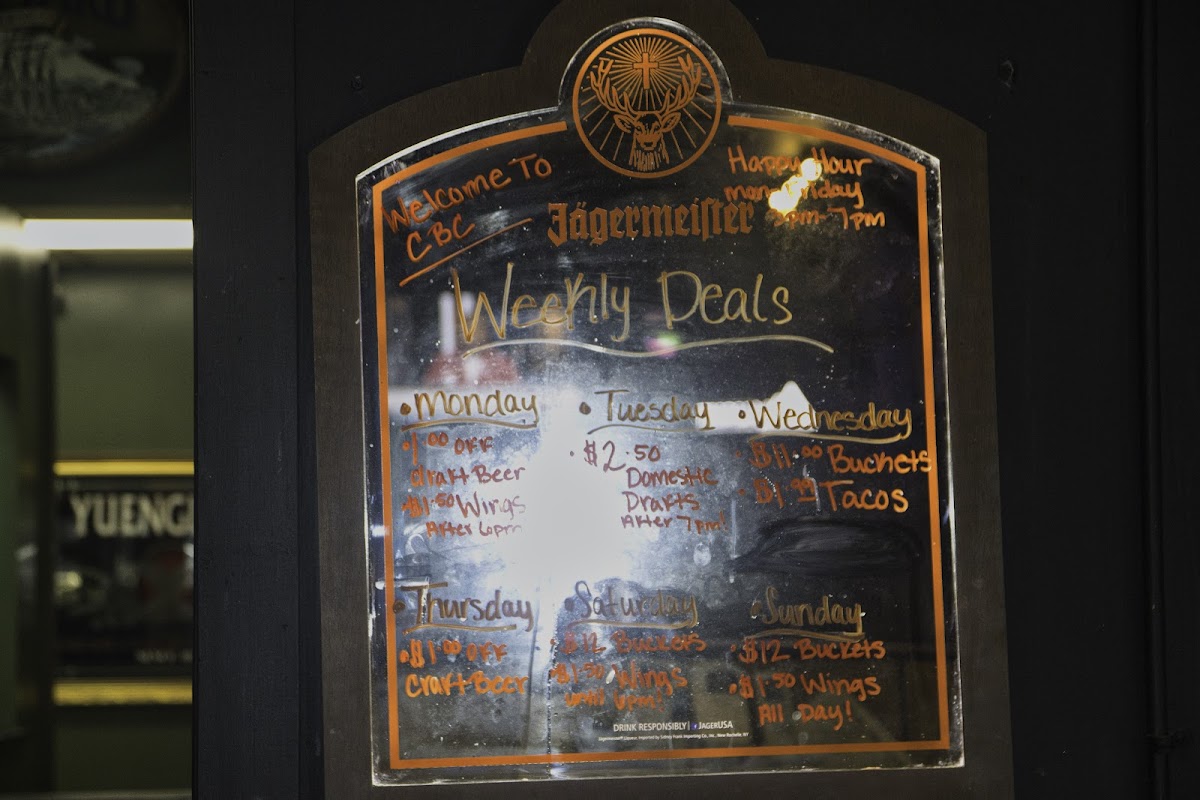 Welcome To
CBC
Happy Hour
mon-Friday
pm-7pm
Jägermeister
Weekly Deals
• Monday
• 1.00 OFF
draft Beer
• $1.50 Wings
After 6pm
• Tuesday
• $2.50
Domestic
Drafts
After 7pm!
• Wednesday
• $11.00 Buckets
• $1.99 Tacos
• Thursday
• $1.00 OFF
Craft Beer
• Saturday
• $12 Buckets
• $1.50 Wings
until 6pm!
• Sunday
• $12 Buckets
• $1.50 Wings
All Day!
DRINK RESPONSIBLY | f JAGERUSA
YUENG